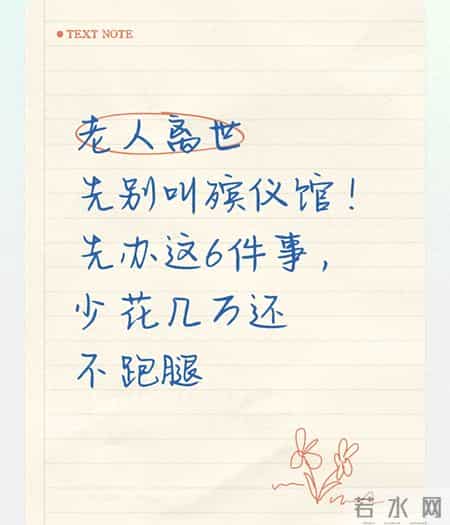 TEXT NOTE
老人离世
先别叫殡仪馆！
先办这6件事，
少花几万还
不跑腿
若水网